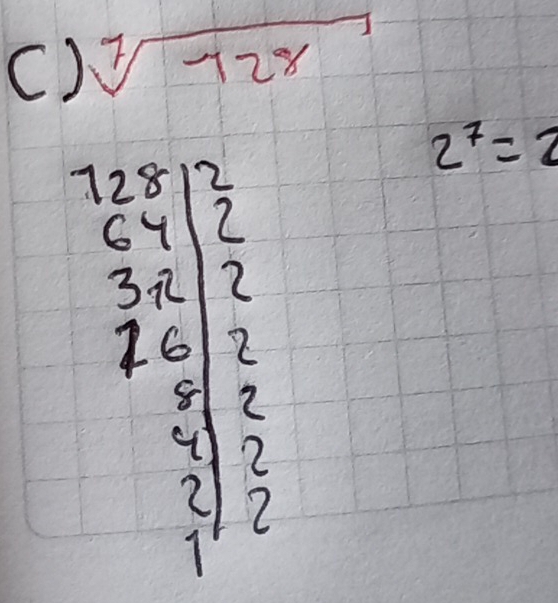 C) ⁷√128
2⁷ = 2
128 | 2
64 | 2
32 | 2
16 | 2
8 | 2
4 | 2
2 | 2
1